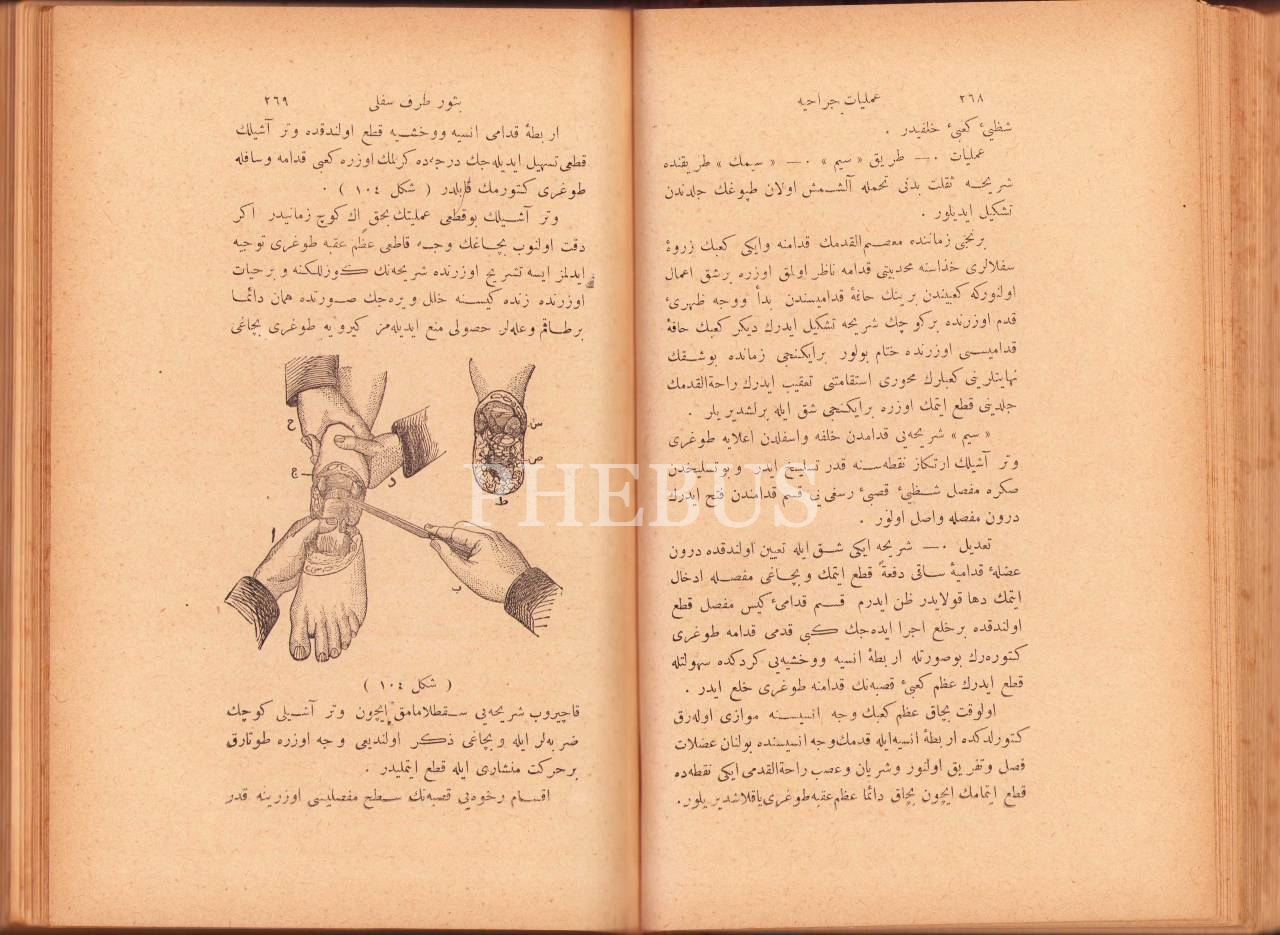 ٢٦٨
عمليات جراحيه
شظيئ كعبئ خلفيدر .
عمليات ٠— طريق « سيم » ٠— « سيمك » طريقنده
شريحه ثقلت بدنى تحمله آلشمش اولان طپوغك جلدندن
تشكيل ايديلور .
برنجى زماننده معصم القدمك قدامنه وايكى كعبك زروۀ
سفلالرى خذاسنه محدبيتى قدامه ناظر اولمق اوزره برشق اعمال
اولنوركه كعبيندن برينك حافۀ قداميسندن بدأ ووجه ظهرئ
قدم اوزرنده بركوچك شريحه تشكيل ايدرك ديكر كعبك حافۀ
قداميسى اوزرنده ختام بولور برايكنجى زمانده بوشقك
نهايتلرينى كعبلرك محورى استقامتنى تعقيب ايدرك راحة القدمك
جلدينى قطع ايتمك اوزره برايكنجى شق ايله برلشديريلر .
« سيم » شريحه يى قدامدن خلفه واسفلدن اعلايه طوغرى
وتر آشيلك ارتكاز نقطه سنه قدر تسليخ ايدر وبوتسليخدن
صكره مفصل شظيئ قصبئ رسغى نى قسم قدامندن فتح ايدرك
درون مفصله واصل اولور .
تعديل ٠— شريحه ايكى شق ايله تعيين اولندقده درون
عضلۀ قداميۀ ساقى دفعةً قطع ايتمك وبچاغى مفصله ادخال
ايتمك دها قولايدر ظن ايدرم قسم قدامئ كيس مفصل قطع
اولندقده برخلع اجرا ايده جك كبى قدمى قدامه طوغرى
كتوره رك بوصورتله اربطۀ انسيه ووخشيه يى كردكده سهولتله
قطع ايدرك عظم كعبئ قصبه نك قدامنه طوغرى خلع ايدر .
اولوقت بچاق عظم كعبك وجه انسيسنه موازى اوله رق
كتورلدكده اربطۀ انسيه ايله قدمك وجه انسيسنده بولنان عضلات
فصل وتفريق اولنور وشريان وعصب راحة القدمى ايكى نقطه ده
قطع ايتمامك ايچون بچاق دائما عظم عقبه طوغرى ياقلاشديريلور .
بثور طرف سفلى
٢٦٩
اربطۀ قدامى انسيه ووخشيه قطع اولندقده وتر آشيلك
قطعى تسهيل ايديله جك درجه ده كرلمك اوزره كعبى قدامه وسافله
طوغرى كتورمك قابلدر ( شكل ١٠٤ ) .
وتر آشيلك بوقطعى عملياتك بحق اك كوچ زمانيدر اكر
دقت اولنوب بچاغك وجه قاطعى عظم عقبه طوغرى توجيه
ايدلمز ايسه تشريح اوزرنده شريحه نك كوزللكنه وبرحيات
اوزرنده زنده كيسنه خلل ويره جك صورتده همان دائما
برطاقم وعله لر حصولى منع ايديله مز كيرويه طوغرى بچاغى
س
ص
ط
ح
ع
د
ا
ب
( شكل ١٠٤ )
قاچيروب شريحه يى سقطلامامق ايچون وتر آشيلى كوچك
ضربه لر ايله وبچاغى ذكر اولنديغى وجه اوزره طوتارق
برحركت منشارى ايله قطع ايتمليدر .
اقسام رخوه يى قصبه نك سطح مفصليسى اوزرينه قدر
PHEBUS